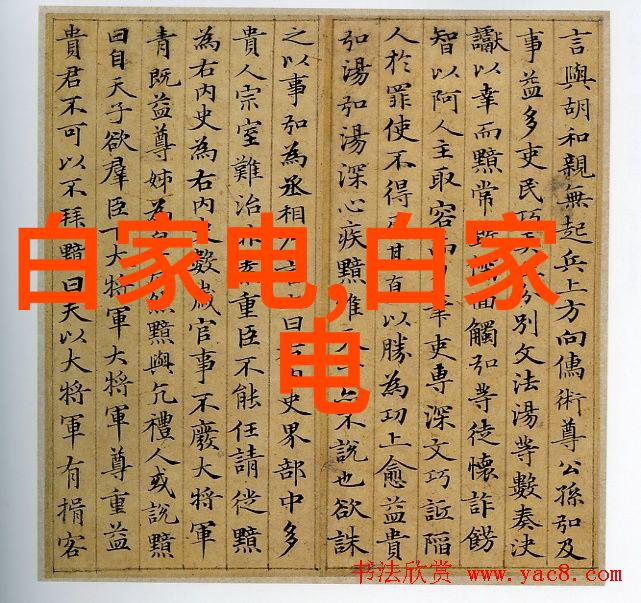 言與胡和親無起兵上方向儒術尊公孫弘及
事益多吏民巧分別文法湯等數奏決
讞以幸而黯常面觸弘等徒懷詐飾
智以阿人主取容而筆吏專深文巧詆陷
人於罪使不得其以勝為功上愈益貴
弘湯弘湯深心疾黯唯不說也欲誅
之以事弘為丞相曰內史界部中多
貴人宗室難治非素重臣不能任請徙黯
為右內史為右內史數歲官事不廢大將軍
青既益尊姊為然黯與亢禮人或說黯
曰自天子欲羣臣下大將軍大將軍尊重益
貴君不可以不拜黯曰夫以大將軍有揖客
白家电,白家
电
书法欣赏 www.yac8.com